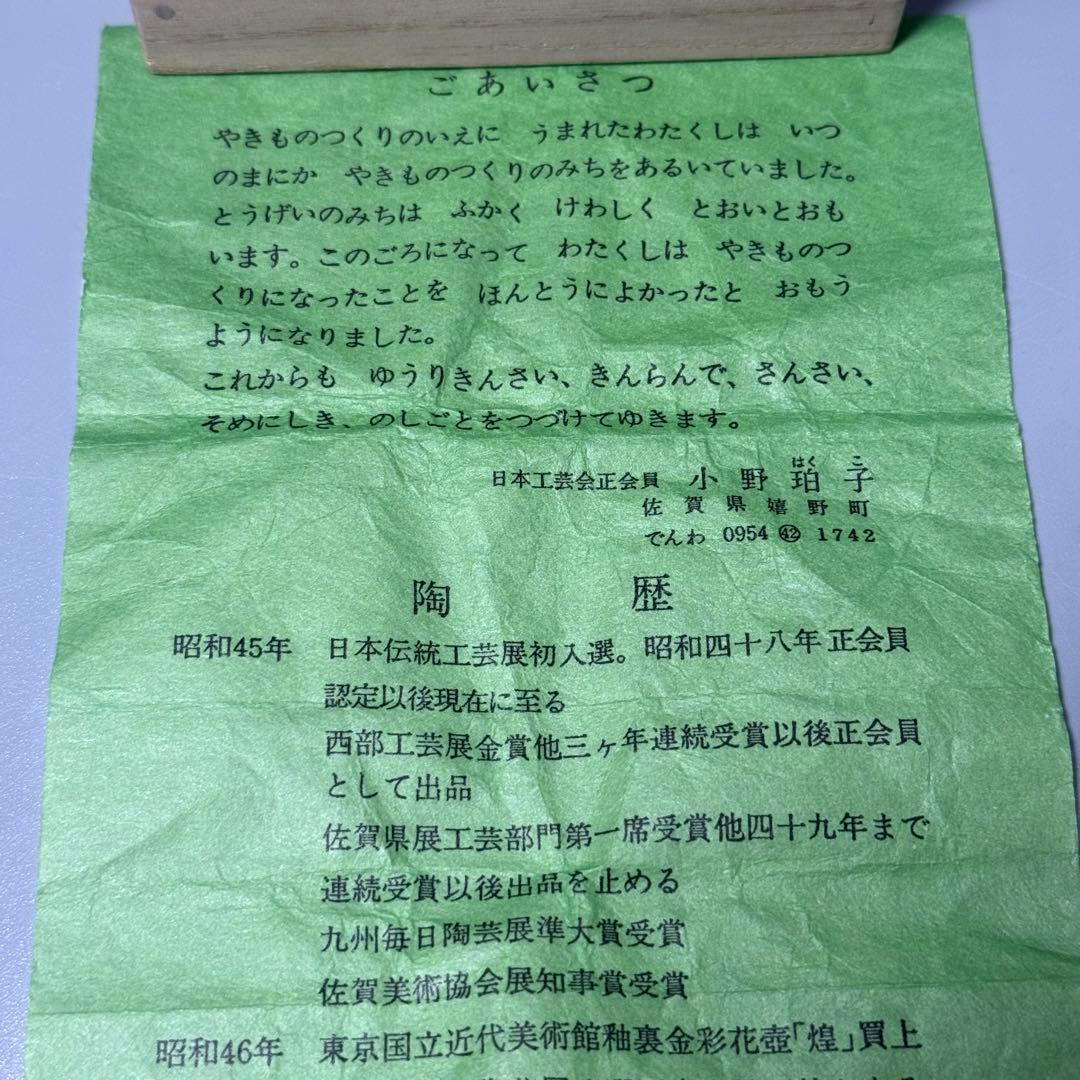 ごあいさつ
やきものつくりのいえに　うまれたわたくしは　いつ
のまにか　やきものつくりのみちをあるいていました。
とうげいのみちは　ふかく　けわしく　とおいとおも
います。このごろになって　わたくしは　やきものつ
くりになったことを　ほんとうによかったと　おもう
ようになりました。
これからも　ゆうりきんさい、きんらんで、さんさい、
そめにしき、のしごとをつづけてゆきます。
はく こ
日本工芸会正会員　小野珀子
佐賀県嬉野町
でんわ 0954 ㊷ 1742
陶歴
昭和45年　日本伝統工芸展初入選。昭和四十八年正会員
認定以後現在に至る
西部工芸展金賞他三ヶ年連続受賞以後正会員
として出品
佐賀県展工芸部門第一席受賞他四十九年まで
連続受賞以後出品を止める
九州毎日陶芸展準大賞受賞
佐賀美術協会展知事賞受賞
昭和46年　東京国立近代美術館釉裏金彩花壺「煌」買上